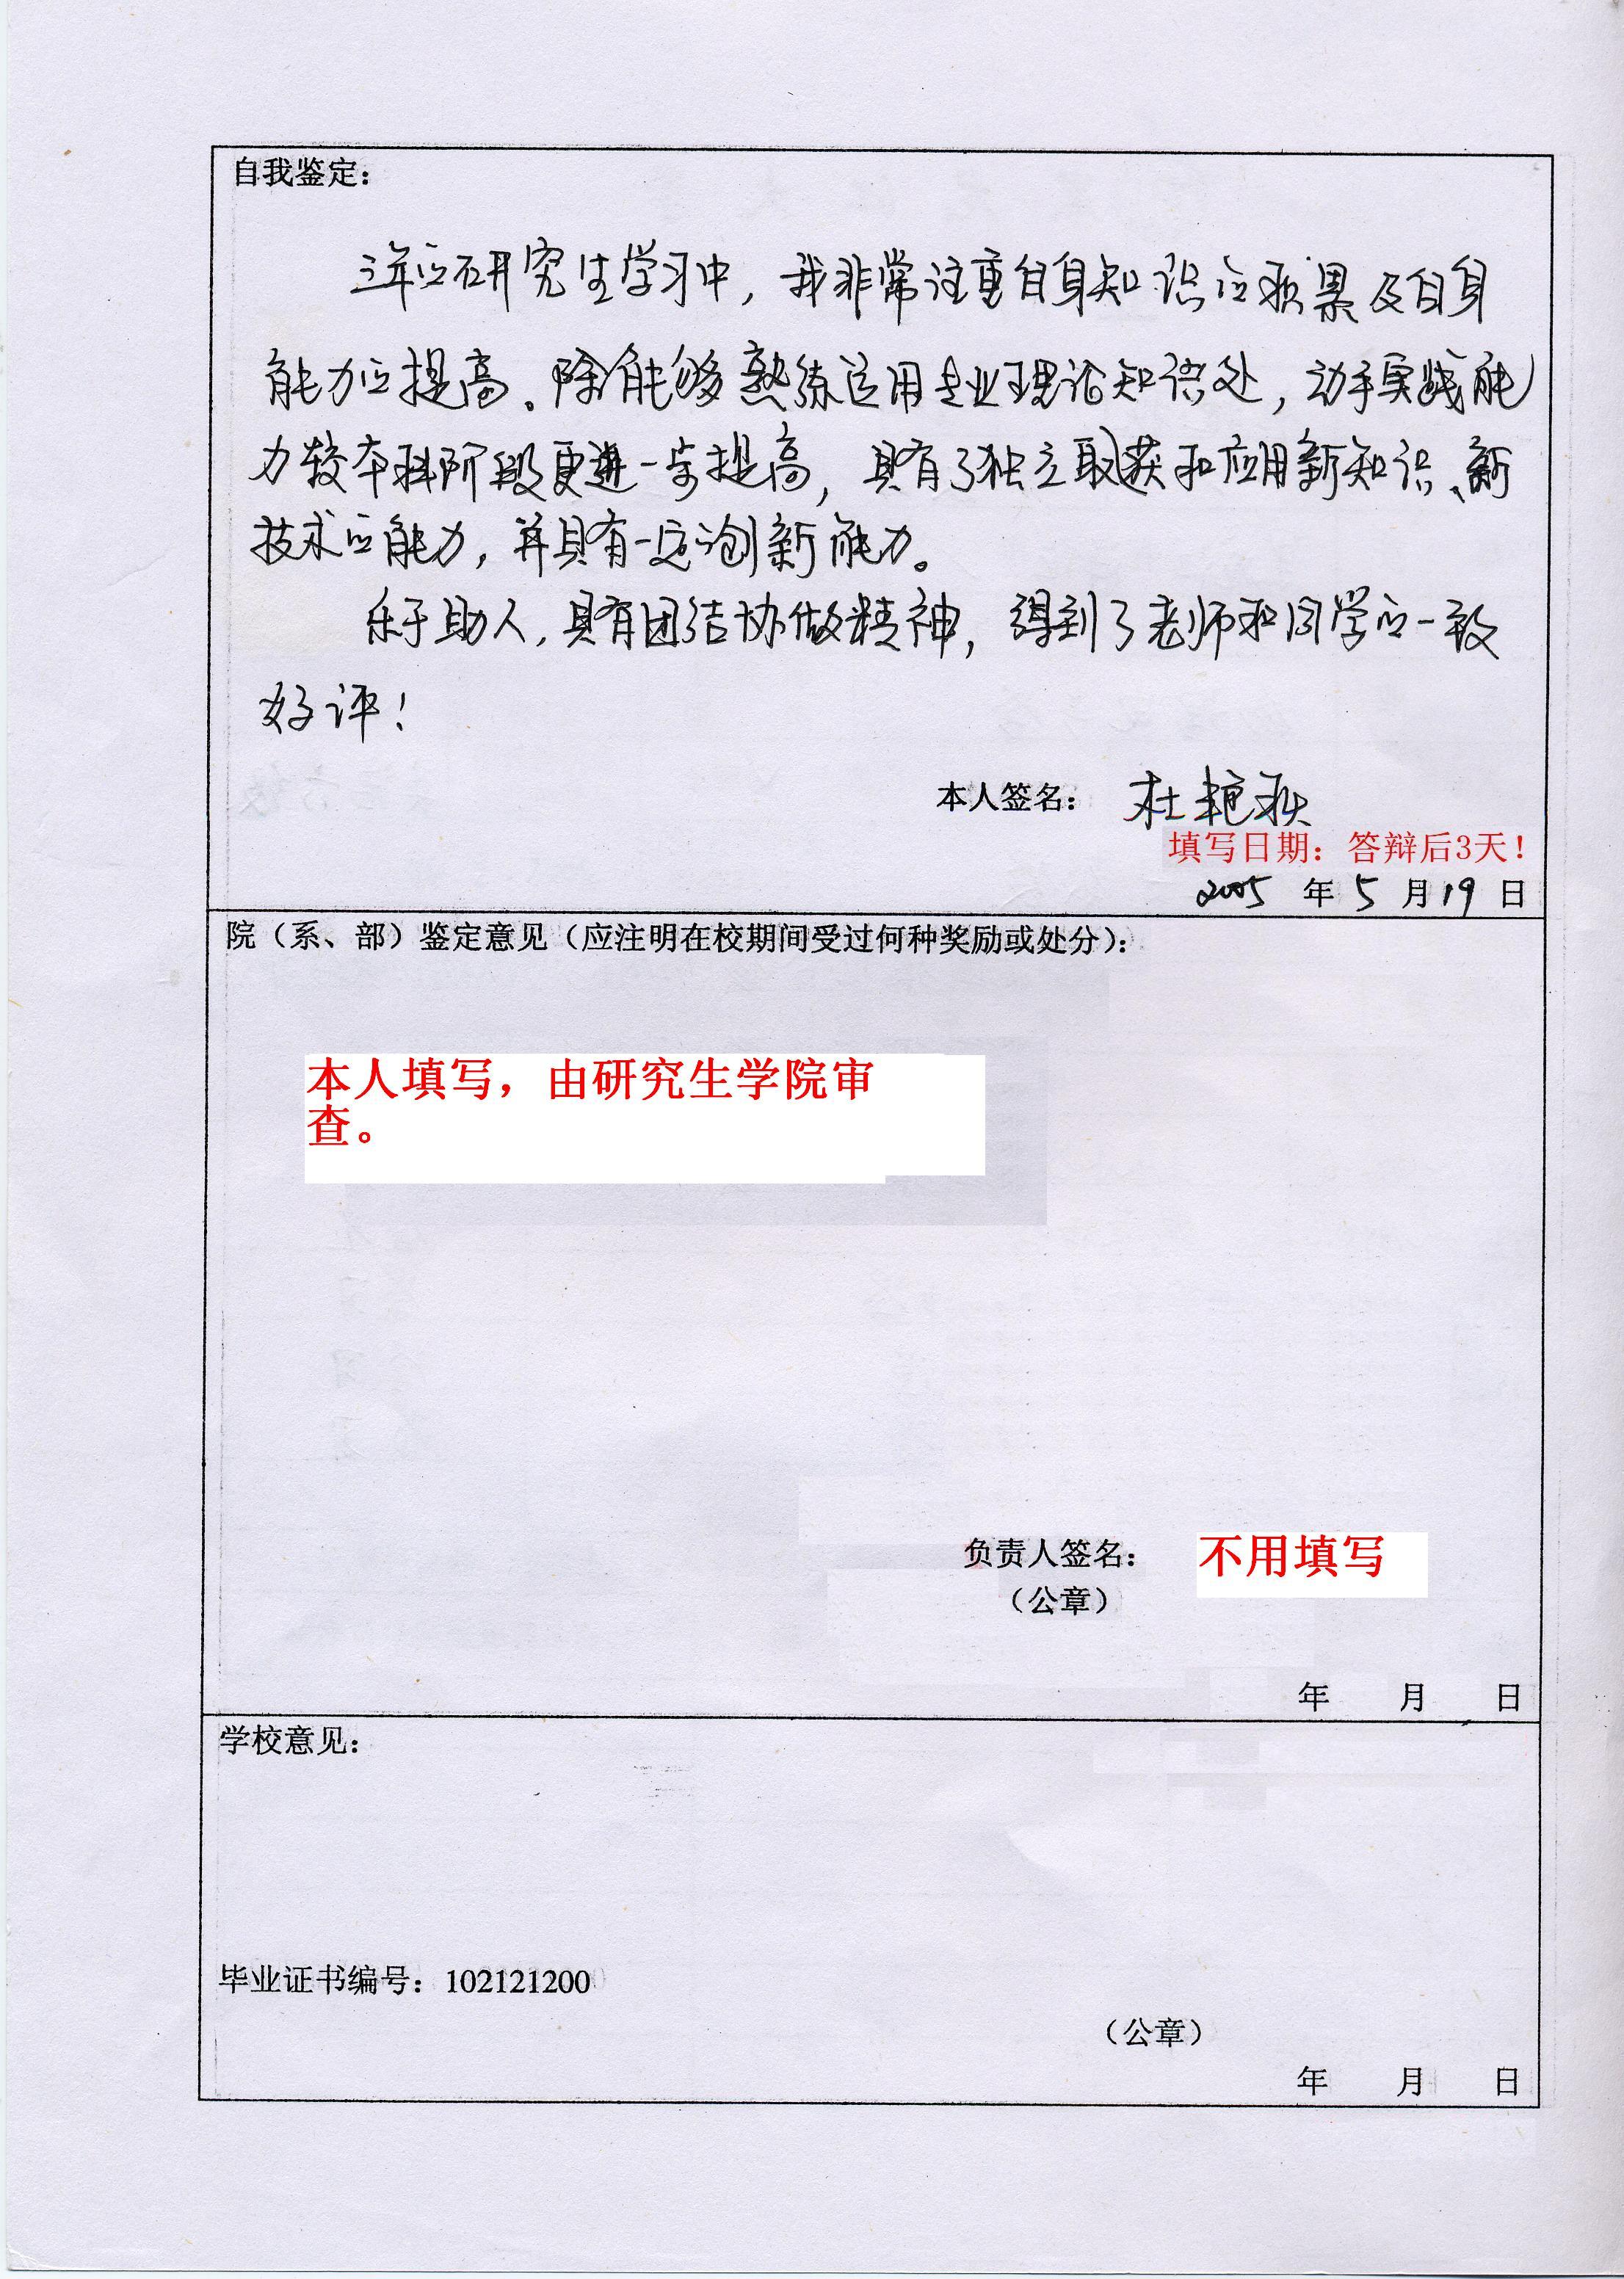 自我鉴定：
三年的研究生学习中，我非常注重自身知识的积累及自身
能力的提高。除能够熟练运用专业理论知识处，动手实践能
力较本科阶段更进一步提高，具有了独立取获和应用新知识、新
技术的能力，并具有一定的创新能力。
乐于助人，具有团结协做精神，得到了老师和同学的一致
好评！
本人签名：杜艳秋
填写日期：答辩后3天！
2005 年 5 月 19 日
院（系、部）鉴定意见（应注明在校期间受过何种奖励或处分）：
本人填写，由研究生学院审
查。
负责人签名： 不用填写
（公章）
年 月 日
学校意见：
毕业证书编号：102121200
（公章）
年 月 日